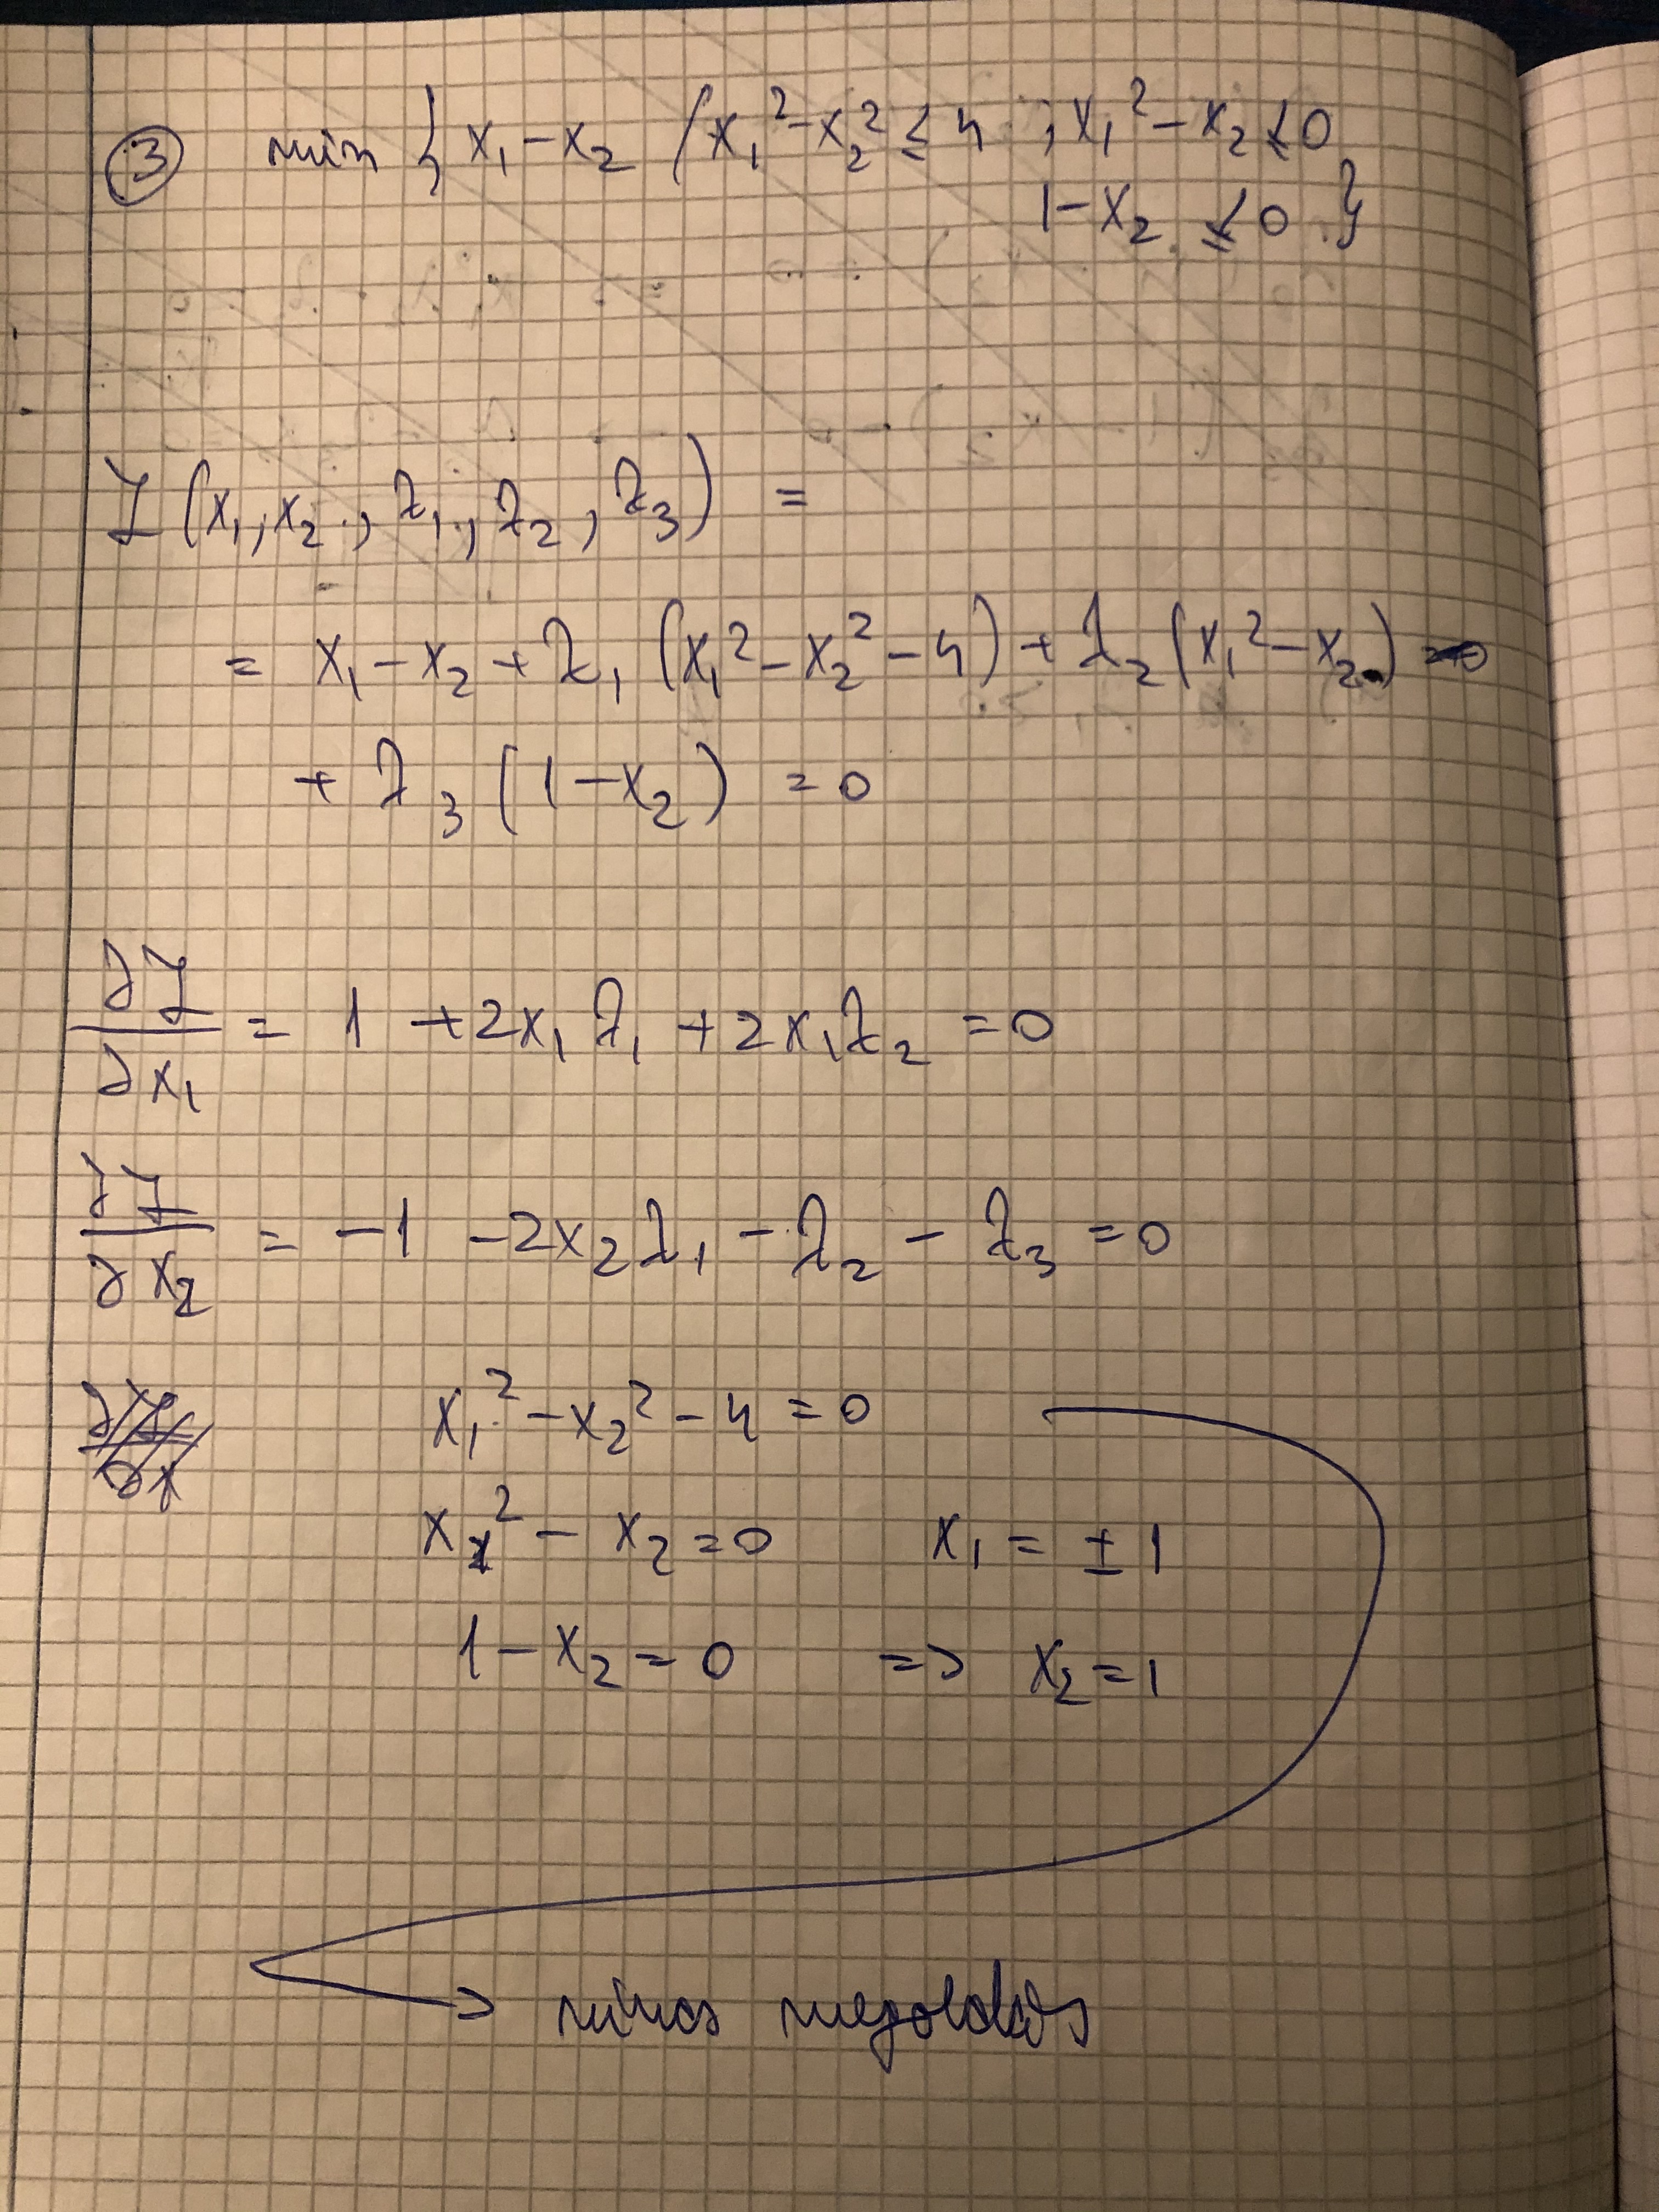 ③ min { x₁ - x₂ / x₁² - x₂² ≤ 4 ; x₁² - x₂ ≤ 0
1 - x₂ ≤ 0 }
L (x₁, x₂, λ₁, λ₂, λ₃) =
= x₁ - x₂ + λ₁ (x₁² - x₂² - 4) + λ₂ (x₁² - x₂)
+ λ₃ (1 - x₂) = 0
∂L/∂x₁ = 1 + 2x₁λ₁ + 2x₁λ₂ = 0
∂L/∂x₂ = -1 - 2x₂λ₁ - λ₂ - λ₃ = 0
∂L/∂x x₁² - x₂² - 4 = 0
x₁² - x₂ = 0 x₁ = ± 1
1 - x₂ = 0 => x₂ = 1
nincs megoldás